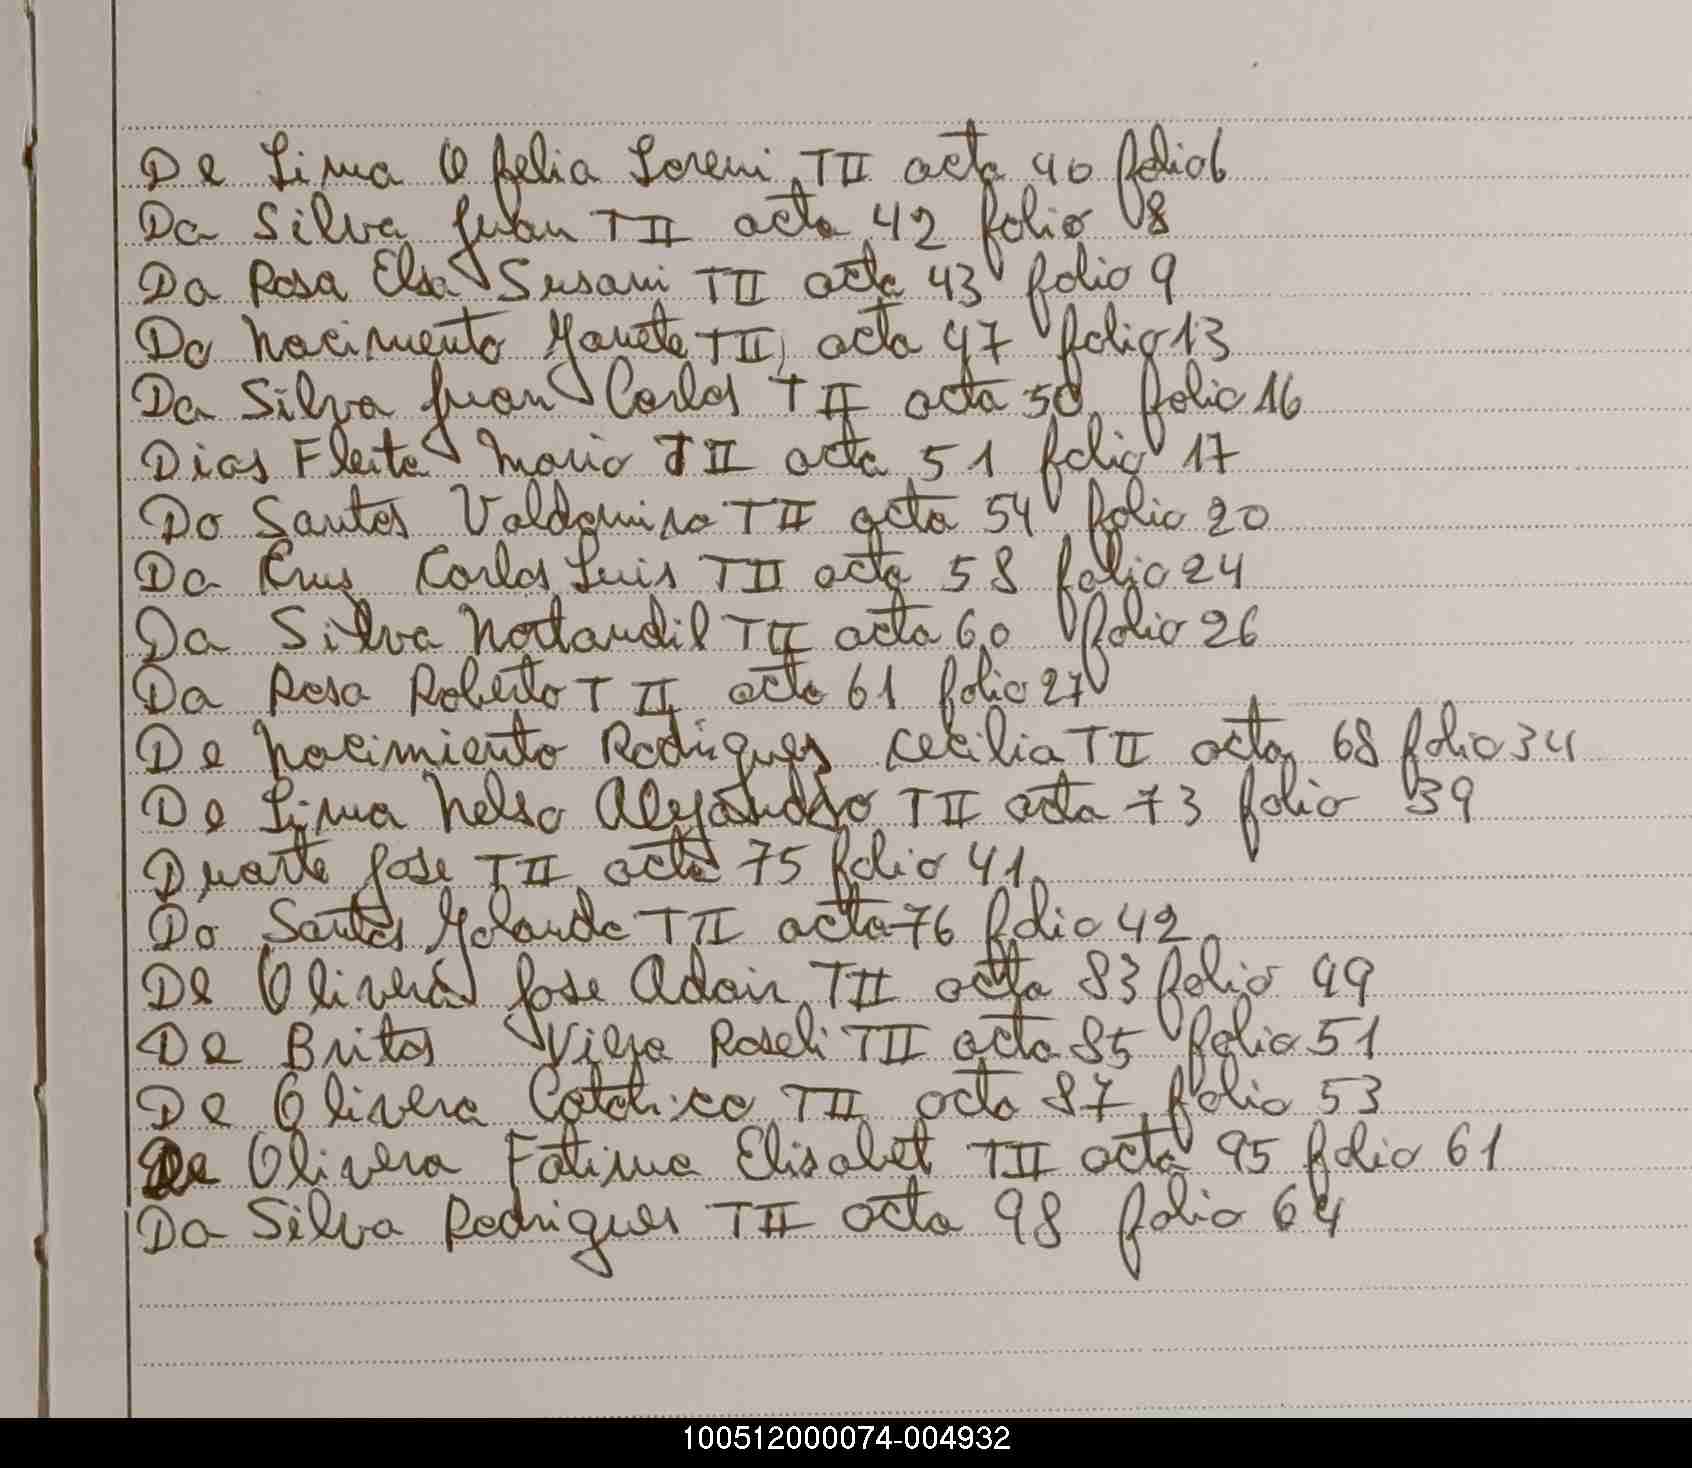 De Lima Ofelia Loreni TII acta 40 folio 6
Da Silva Juan TII acta 42 folio 8
Da Rosa Elsa Susani TII acta 43 folio 9
Do Nacimento Yanete TII acta 47 folio 13
Da Silva Juan Carlos TII acta 50 folio 16
Dias Fleita Mario TII acta 51 folio 17
Do Santos Valdomiro TII acta 54 folio 20
Da Crus Carlos Luis TII acta 58 folio 24
Da Silva TII acta 60 folio 26
Da Rosa Roberto TII acta 61 folio 27
De Nacimiento Rodrigues Cecilia TII acta 68 folio 34
De Lima Nelso Alejandro TII acta 73 folio 39
Duarte Jose TII acta 75 folio 41
Do Santos Yolanda TII acta 76 folio 42
De Olivera Jose Adair TII acta 83 folio 49
De Britos Viera Roseli TII acta 85 folio 51
De Olivera TII acta 87 folio 53
De Olivera Fatima Elisabet TII acta 95 folio 61
Da Silva Rodrigues TII acta 98 folio 64
100512000074-004932